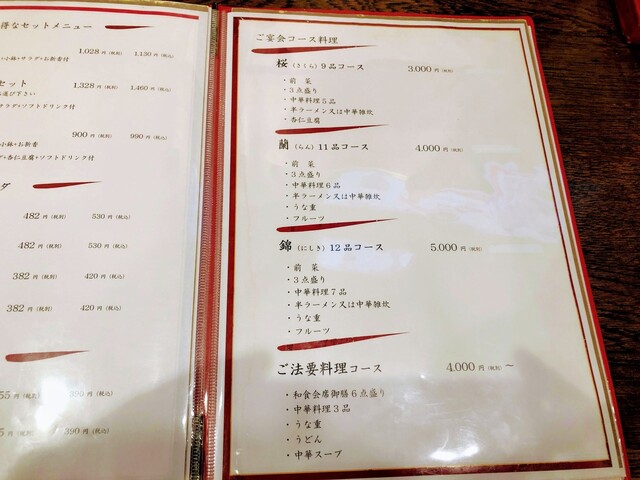 得なセットメニュー
1,028円(税別) 1,130円(税込)
+小鉢+サラダ+お新香付
セット
1,328円(税別) 1,460円(税込)
お選び下さい
サラダ+ソフトドリンク付
900円(税別) 990円(税込)
小鉢+お新香
ダ+杏仁豆腐+ソフトドリンク付
ダ
482円(税別) 530円(税込)
482円(税別) 530円(税込)
382円(税別) 420円(税込)
382円(税別) 420円(税込)
55円(税別) 390円(税込)
5円(税別) 390円(税込)
ご宴会コース料理
桜(さくら)9品コース 3,000円(税別)
・前 菜
・3点盛り
・中華料理5品
・半ラーメン又は中華雑炊
・杏仁豆腐
蘭(らん)11品コース 4,000円(税別)
・前 菜
・3点盛り
・中華料理6品
・半ラーメン又は中華雑炊
・うな重
・フルーツ
錦(にしき)12品コース 5,000円(税別)
・前 菜
・3点盛り
・中華料理7品
・半ラーメン又は中華雑炊
・うな重
・フルーツ
ご法要料理コース 4,000円(税別)～
・和食会席御膳6点盛り
・中華料理3品
・うな重
・うどん
・中華スープ